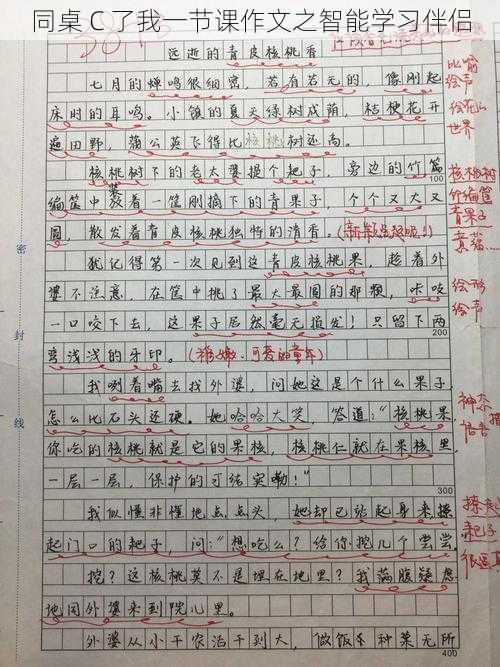 同桌 C 了我一节课作文之智能学习伴侣
远逝的青皮核桃香
七月的蝉鸣很细密，若有若无的，像刚起
床时的耳鸣。小镇的夏天绿树成荫，桔梗花开
遍田野，蒲公英飞得比核桃树还高。
核桃树下的老太婆摸个耙子，旁边的竹篇
编筐中装着一筐刚摘下的青果子，个个又大又
圆，散发着青皮核桃独特的清香。
犹记得第一次见到这青皮核桃果，趁着外
婆不注意，在筐中挑了最大最圆的那颗，咔咬
一口咬下去，这果子居然毫无损发！只留下两
弯浅浅的牙印。
我咧着嘴去找外婆，问她这是个什么果子
怎么比石头还硬。她哈哈大笑，答道：“核桃果，
你吃的核桃就是它的果核，核桃仁就在果核里，
一层一层，保护的可结实嘞！”
我似懂非懂地点点头，她却已站起身来操
起门口的耙子，问：“想吃么？给你挖几个尝尝。
挖？这核桃莫不是埋在地里？我满腹疑虑
地同外婆来到院儿里。
外婆从小干农活干到大，做饭种菜无所
比喻
绘声
世界
核桃树
竹编筐
青果子
绘形
绘声
神态
耙子
密
封
线
100
300
400